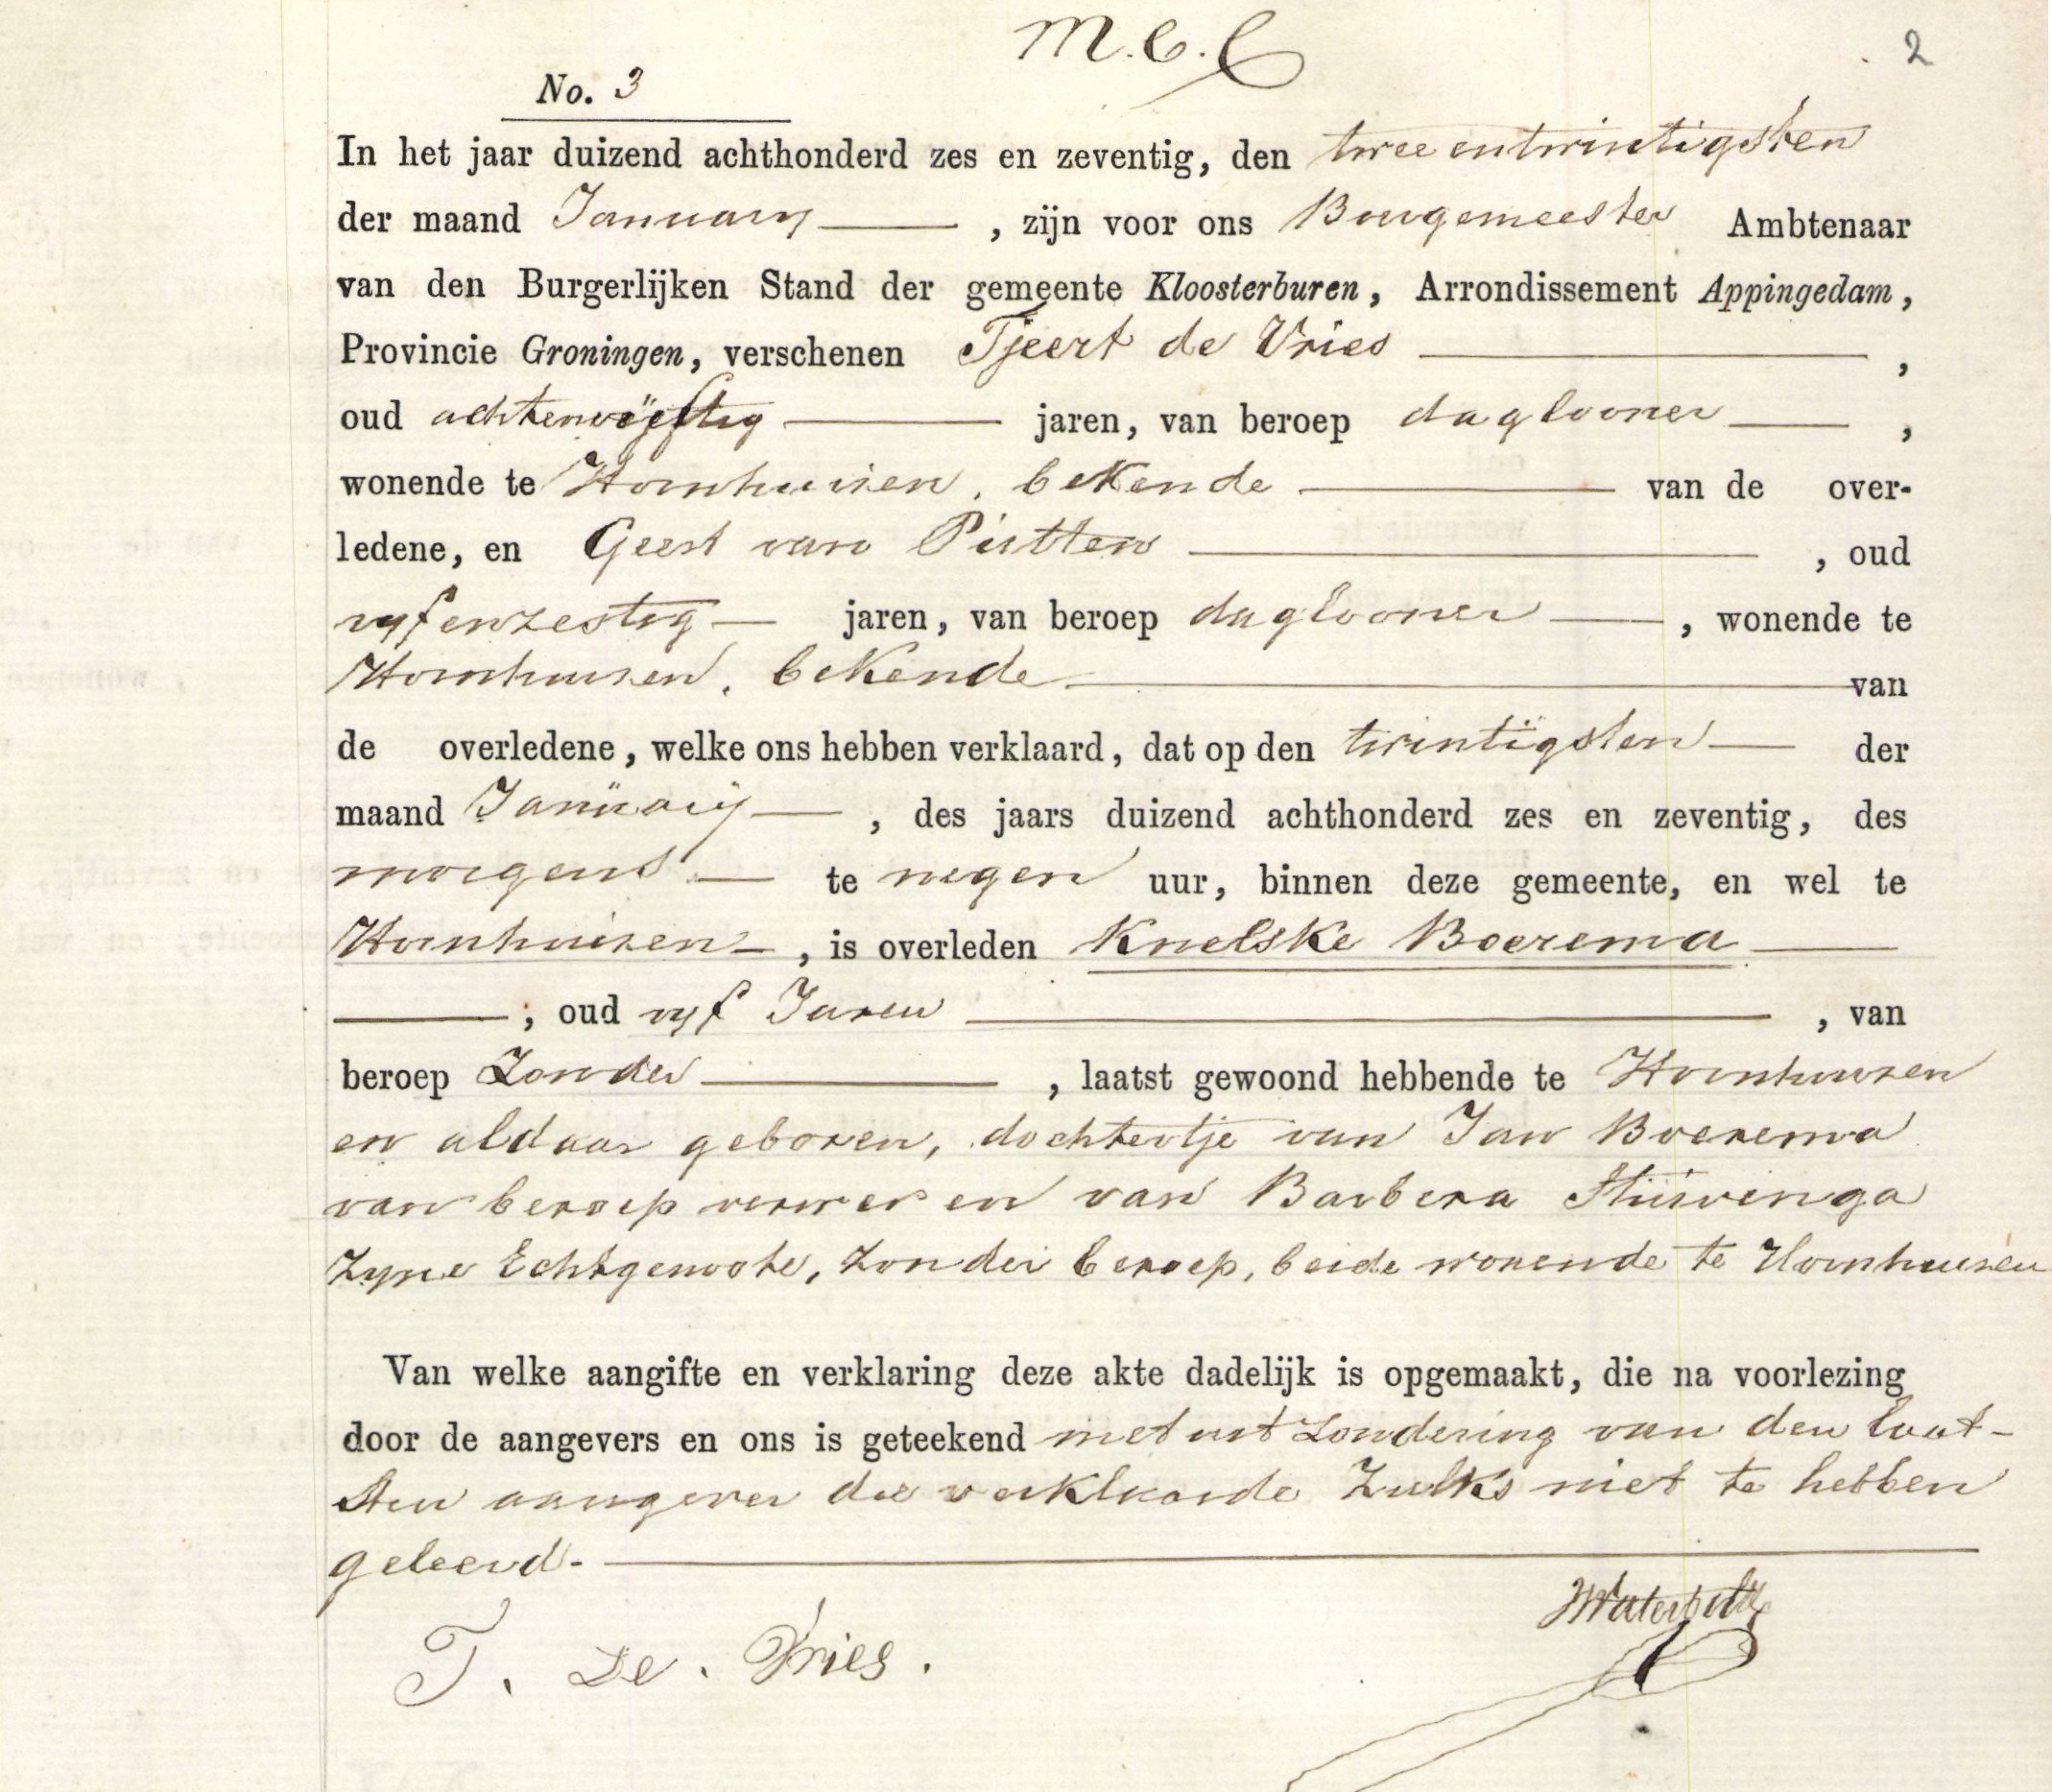 M.C.C
2
No. 3
In het jaar duizend achthonderd zes en zeventig, den twee entwintigsten
der maand January , zijn voor ons Burgemeester Ambtenaar
van den Burgerlijken Stand der gemeente Kloosterburen, Arrondissement Appingedam,
Provincie Groningen, verschenen Tjeert de Vries ,
oud achtenvijftig jaren, van beroep daglooner ,
wonende te Hornhuizen, bekende van de over-
ledene, en Geert van Putten , oud
vyfenzestig jaren, van beroep daglooner , wonende te
Hornhuizen, bekende van
de overledene, welke ons hebben verklaard, dat op den twintigsten der
maand January , des jaars duizend achthonderd zes en zeventig, des
morgens te negen uur, binnen deze gemeente, en wel te
Hornhuizen , is overleden Knelske Boerema
; oud vyf Jaren , van
beroep Zonder , laatst gewoond hebbende te Hornhuizen
en aldaar geboren, dochtertje van Jan Boerema
van beroep verwer en van Barbera Stuivenga
Zyne Echtgenoote, Zonder beroep, beide wonende te Hornhuizen
Van welke aangifte en verklaring deze akte dadelijk is opgemaakt, die na voorlezing
door de aangevers en ons is geteekend met uit Zondering van den laat-
sten aangever die verklaarde Zulks niet te hebben
geleerd.
T. De. Vries.